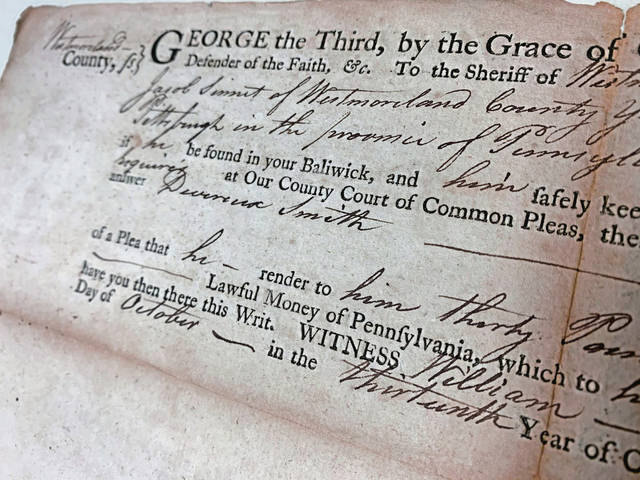 Westmoreland
County, ſs}
GEORGE the Third, by the Grace of
Defender of the Faith, &c. To the Sheriff of
Jacob Sinnit of Westmoreland County
Pittsburgh in the province of
if he be found in your Bailiwick, and him ſafely
at Our County Court of Common Pleas, the
answer Devereux Smith
of a Plea that he render to him thirty
Lawful Money of Pennſylvania, which to
have you then there this Writ. WITNESS William
Day of October in the thirteenth Year of